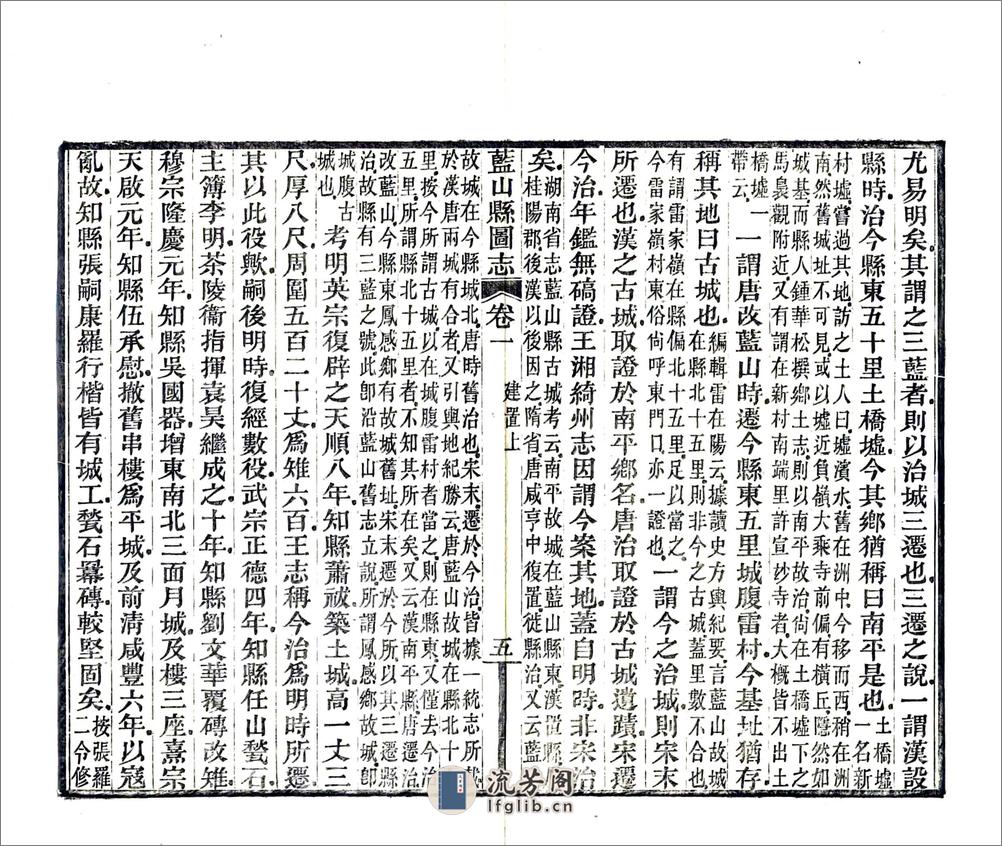 尤易明矣其謂之三藍者則以治城三遷也三遷之說一謂漢設
縣時治今縣東五十里土橋墟今其鄉猶稱曰南平是也土橋墟一名新
村墟嘗過其地訪之土人曰墟濱水舊在洲中今移而西稍在洲
南然舊城址不可見或以墟近負嶺大乘寺前偏有橫丘隱然如
城基而縣人鍾華松撰鄉土志則以南平故治尙在土橋墟下之
馬裊觀附近又有謂在新村南端里許宣妙寺者大槪皆不出土
橋墟一帶云一謂唐改藍山時遷今縣東五里城腹雷村今基址猶存
稱其地曰古城也編輯雷在陽云據讀史方輿紀要言藍山故城在縣北十五里則非今之古城蓋里數不合也
有謂雷家嶺在縣偏北十五里足以當之今雷家嶺村東俗尙呼東門口亦一證也一謂今之治城則宋末
所遷也漢之古城取證於南平鄉名唐治取證於古城遺蹟宋遷
今治年鑑無碻證王湘綺州志因謂今案其地蓋自明時非宋治
矣湖南省志藍山縣古城考云南平故城在藍山縣東漢置縣屬桂陽郡後漢以後因之隋省唐咸亨中復置徙縣治又云藍
藍山縣圖志 卷一 建置上 五
故城在今縣城北唐時舊治也宋末遷於今治皆據一統志所載
於漢唐兩城有合者又引輿地紀勝云唐藍山故城在縣北十五
里按今所謂古城以在城腹雷村者當之則在縣東又僅去今治
五里所謂縣北十五里者不知其所在矣又云漢南平縣唐遷治
改藍山今縣東鳳感鄉有故城舊址宋末遷於今所以其三遷縣
治故縣有三藍之號此卽沿藍山舊志立說所謂鳳感鄉故城卽
城腹古城也考明英宗復辟之天順八年知縣蕭祓築土城高一丈三
尺厚八尺周圍五百二十丈爲雉六百王志稱今治爲明時所遷
其以此役歟嗣後明時復經數役武宗正德四年知縣任山甃石
主簿李明茶陵衞指揮袁昊繼成之十年知縣劉文華覆磚改雉
穆宗隆慶元年知縣吳國器增東南北三面月城及樓三座熹宗
天啟元年知縣伍承慰撤舊串樓爲平城及前清咸豐六年以寇
亂故知縣張嗣康羅行楷皆有城工甃石冪磚較堅固矣按張羅二令修
流芳阁
lfglib.cn